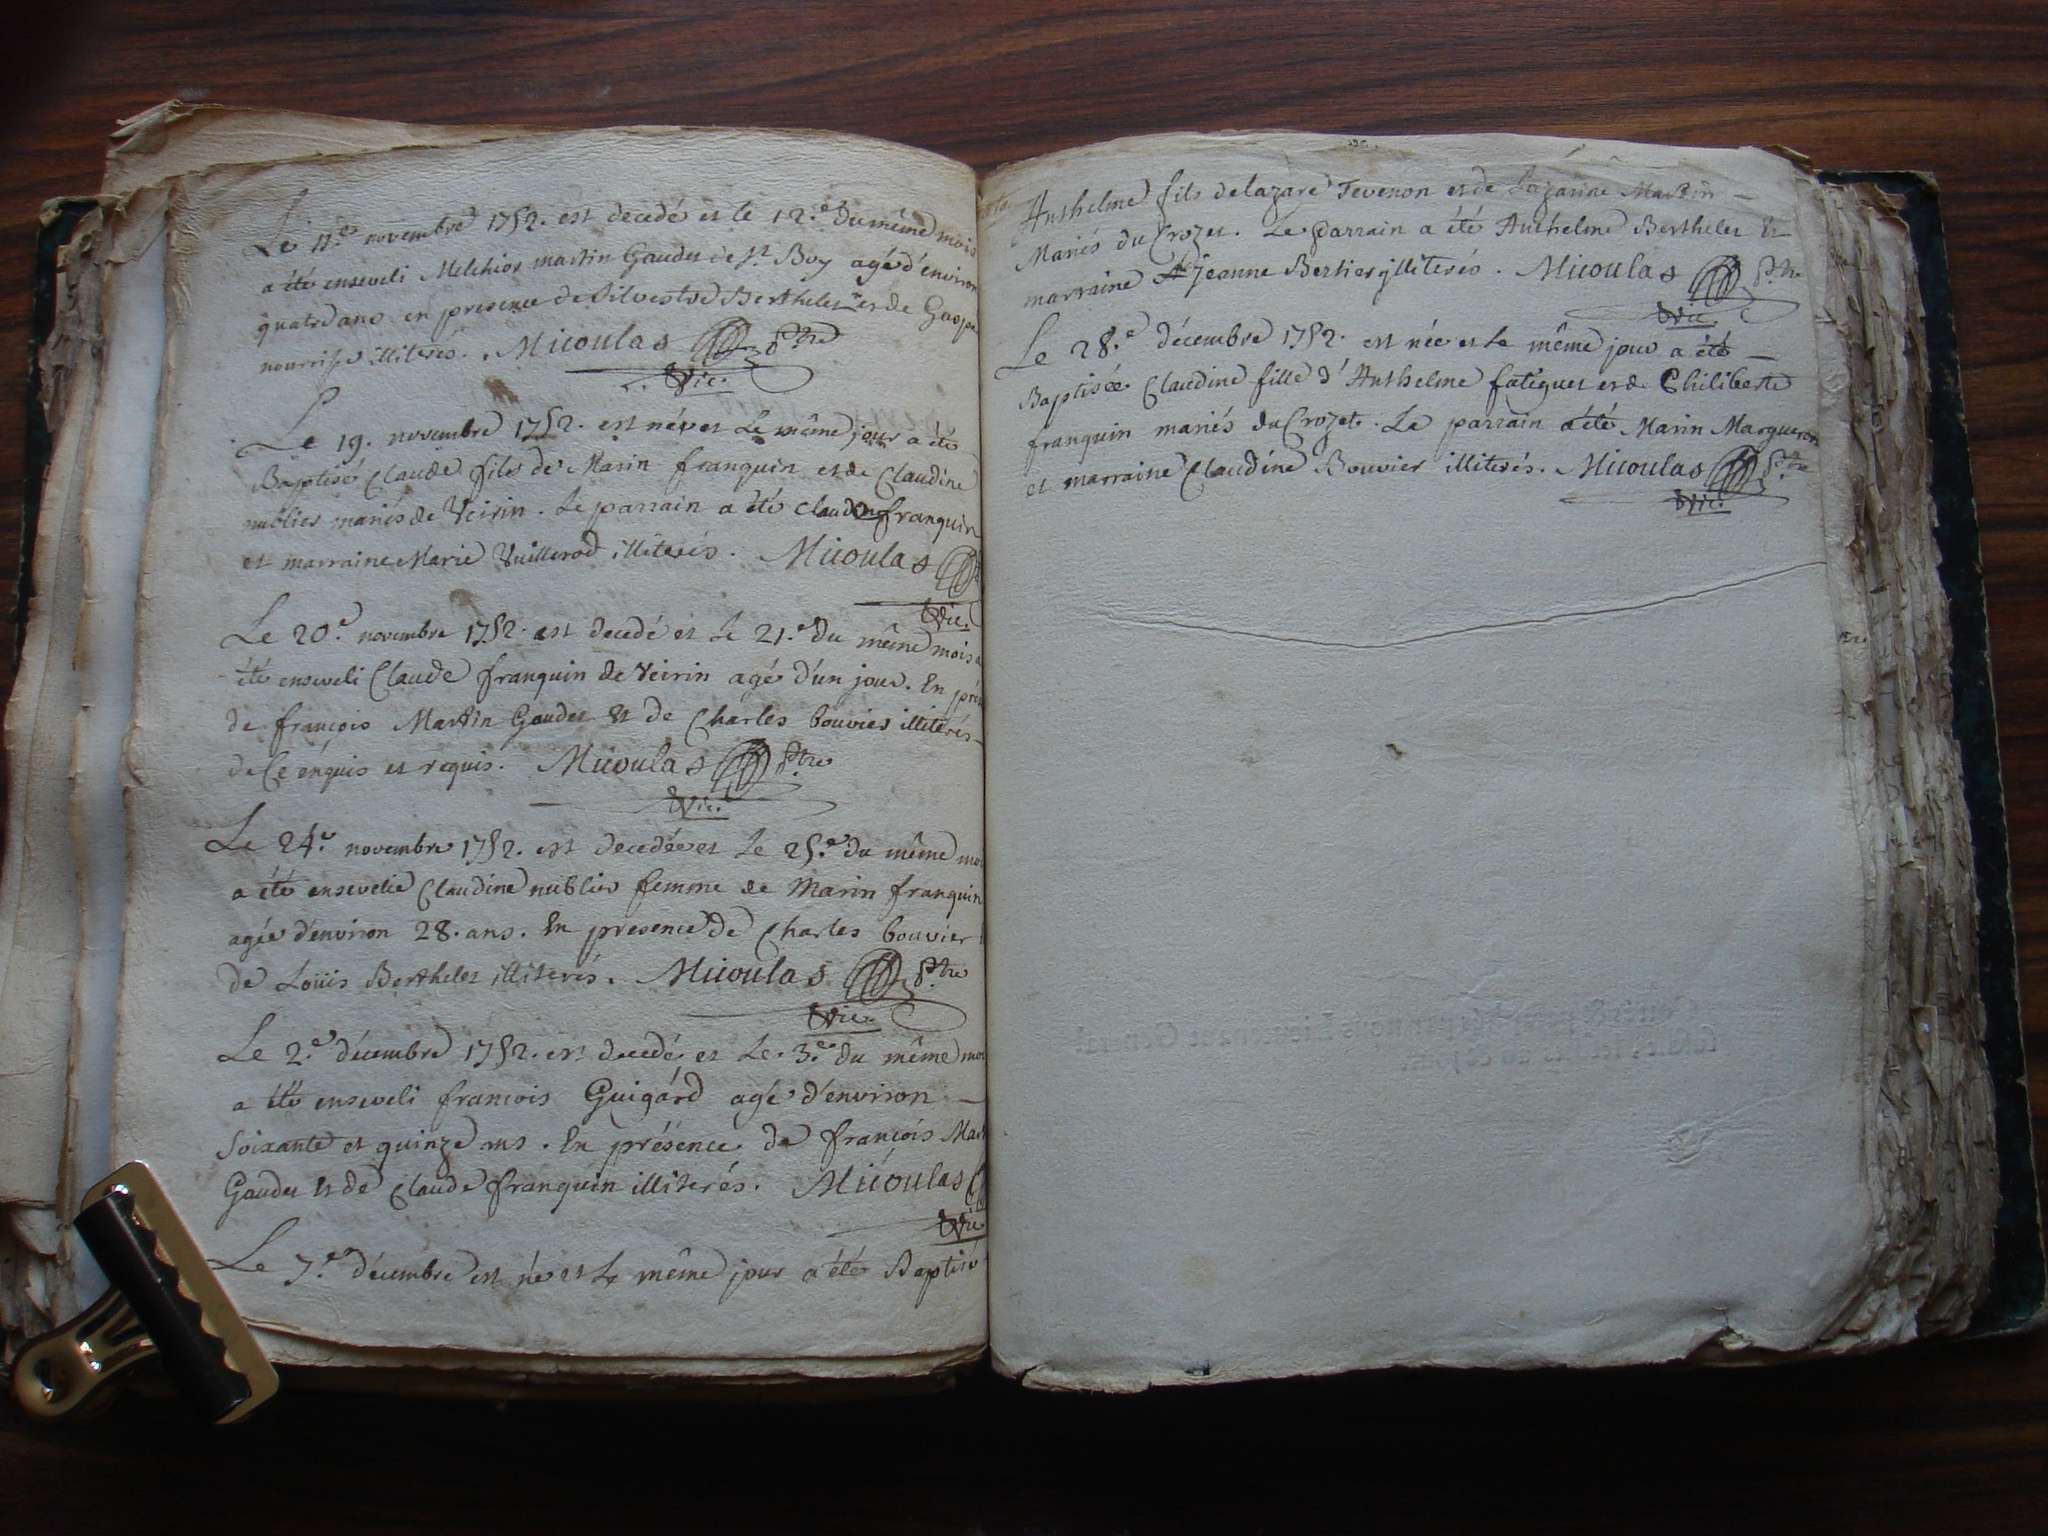 Le 11.e novembre 1752. est decedé et le 12.e du même mois
a été enseveli Melchior martin Gaudet de st Boy agé d'environ
quatre ans en presence de Silvestre Berthelet et de Gaspa
nourrisse illiterés. Micoulas Ptre
Vic.
Le 19. novembre 1752. est né et Le même jour a été
Baptisé Claude fils de Marin franquin et de Claudine
nublier mariés de Veirin. Le parrain a été Claude franquin
et marraine Marie Vuillerod illiterés. Micoulas
Vic.
Le 20.e novembre 1752. est decedé et Le 21.e du même mois a
été enseveli Claude franquin de Veirin agé d'un jour. En pres
de françois Martin Gaudet et de Charles bouvier illiterés
de Ce enquis et requis. Micoulas Ptre
Vic.
Le 24.e novembre 1752. est decedée et Le 25.e du même moi
a été ensevelie Claudine nublier femme de Marin franquin
agée d'environ 28. ans. En presence de Charles bouvier
de Loüis Berthelet illiterés. Micoulas Ptre
Vic.
Le 2.e décembre 1752. est decedé et Le 3.e du même moi
a été enseveli francois Guigárd agé d'environ
soixante et quinze ans. En présence de françois Mart
Gaudet et de Claude franquin illiterés. Micoulas
Vic
Le 7.e décembre est né et Le même jour a été Baptisé
Anthelme fils de lazare Tevenon et de Lazarine Martin
Mariés du Crozet. Le parrain a été Anthelme Berthelet et
marraine Jeanne Bertier illiterés. Micoulas Ptre
Vic
Le 28.e décembre 1752. est née et le même jour a été
Baptisée Claudine fille d'Anthelme fatiguet et de Philiberte
franquin mariés du Crozet. Le parrain a été Marin Margueron
et marraine Claudine Bouvier illiterés. Micoulas Ptre
Vic.